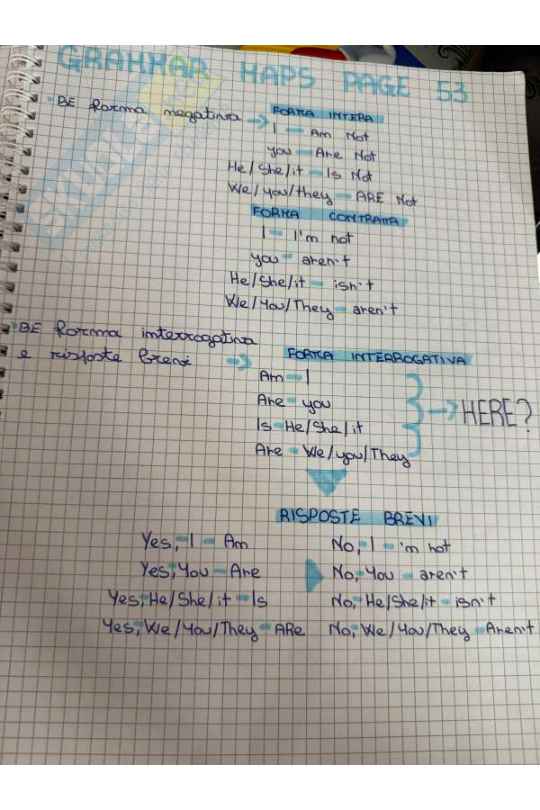 GRAMMAR MAPS PAGE 53
BE forma negativa → FORMA INTERA
I - Am Not
you - Are Not
He/She/it - Is Not
We/you/they - ARE Not
FORMA CONTRATTA
I - I'm not
you - aren't
He/She/it - isn't
We/You/They - aren't
BE forma interrogativa
e risposte brevi → FORMA INTERROGATIVA
Am - I
Are - you
Is - He/She/it
Are - We/you/They
→ HERE?
RISPOSTE BREVI
Yes, I - Am No, I - 'm not
Yes, You - Are No, You - aren't
Yes, He/She/it - Is No, He/She/it - isn't
Yes, We/You/They - ARe No, We/You/They - Aren't